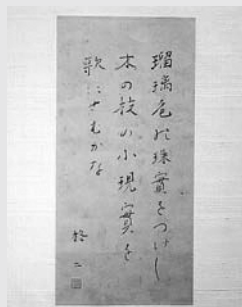 瑠璃色の珠實をつけし
木の故の小現實を
歌にせむかな
柊二